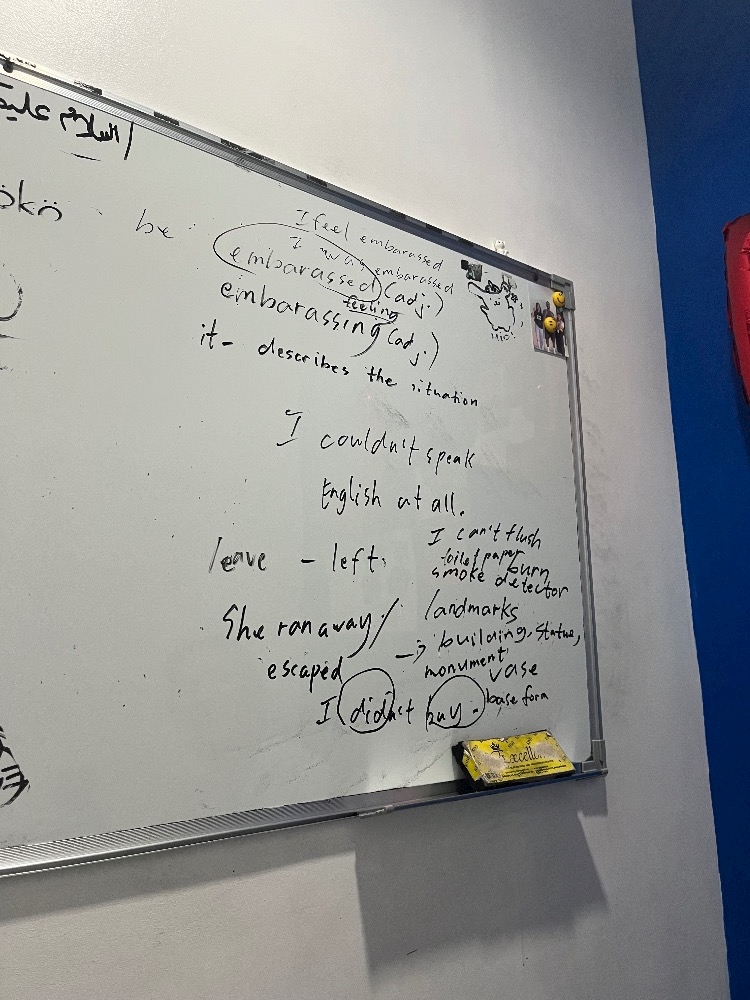 السلام عليك
ökö
be
I feel embarassed
I was embarassed
embarassed (adj.)
feeling
embarassing (adj.)
it - describes the situation
I couldn't speak
English at all.
leave - left
I can't flush
toilet paper
burn
smoke detector
She ran away /
escaped
landmarks
→ building, statue,
monument
vase
I didn't buy - base form
Excellent